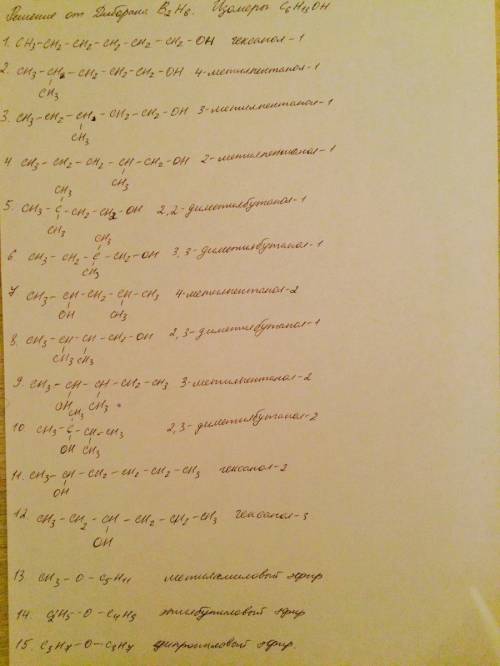 Решение от Диборана B₂H₆. Изомеры C₆H₁₃OH
1. CH₃-CH₂-CH₂-CH₂-CH₂-CH₂-OH гексанол-1
2. CH₃-CH-CH₂-CH₂-CH₂-OH 4-метилпентанол-1
CH₃
3. CH₃-CH₂-CH-CH₂-CH₂-OH 3-метилпентанол-1
CH₃
4 CH₃-CH₂-CH₂-CH-CH₂-OH 2-метилпентанол-1
CH₃
CH₃
5. CH₃-C-CH₂-CH₂-OH 2,2-диметилбутанол-1
CH₃
CH₃
6. CH₃-CH₂-C-CH₂-OH 3,3-диметилбутанол-1
CH₃
7 CH₃-CH-CH₂-CH-CH₃ 4-метилпентанол-2
OH CH₃
8. CH₃-CH-CH-CH₂-OH 2,3-диметилбутанол-1
CH₃ CH₃
9. CH₃-CH-CH-CH₂-CH₃ 3-метилпентанол-2
OH CH₃
CH₃
10. CH₃-C-CH-CH₃ 2,3-диметилбутанол-2
OH CH₃
11. CH₃-CH-CH₂-CH₂-CH₂-CH₃ гексанол-2
OH
12. CH₃-CH₂-CH-CH₂-CH₂-CH₃ гексанол-3
OH
13. CH₃-O-C₅H₁₁ метиламиловый эфир
14. C₂H₅-O-C₄H₉ этилбутиловый эфир
15. C₃H₇-O-C₃H₇ дипропиловый эфир.